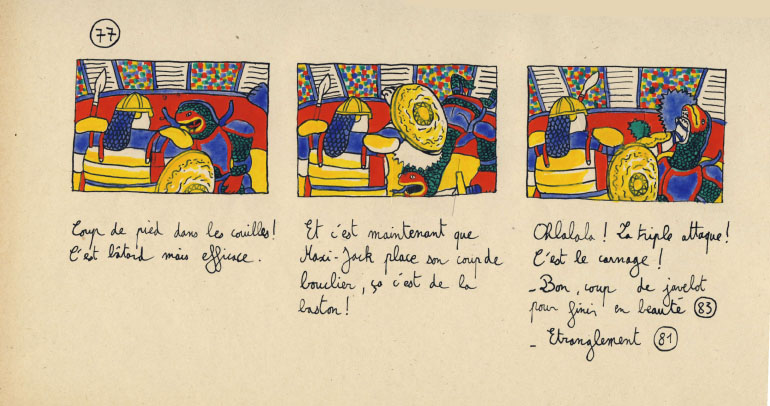 77
Coup de pied dans les couilles!
C'est bâtard mais efficace.
Et c'est maintenant que
Maxi-Jack place son coup de
bouclier, ça c'est de la
baston!
Ohlalala! La triple attaque!
C'est le carnage!
- Bon, coup de javelot
pour finir en beauté 83
- Etranglement 81